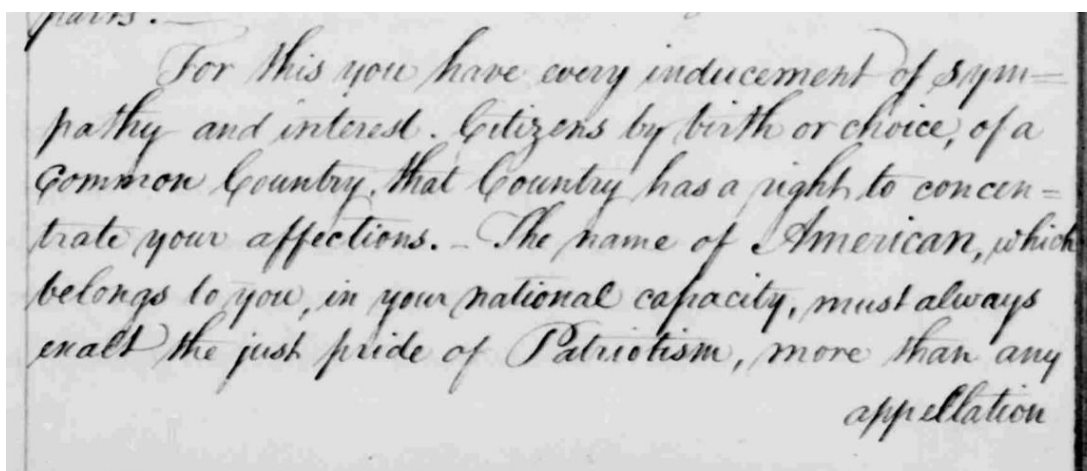 parts. —
For this you have every inducement of sym=
pathy and interest. Citizens by birth or choice, of a
Common Country, that Country has a right to concen=
trate your affections. — The name of American, which
belongs to you, in your national capacity, must always
exalt the just pride of Patriotism, more than any
appellation